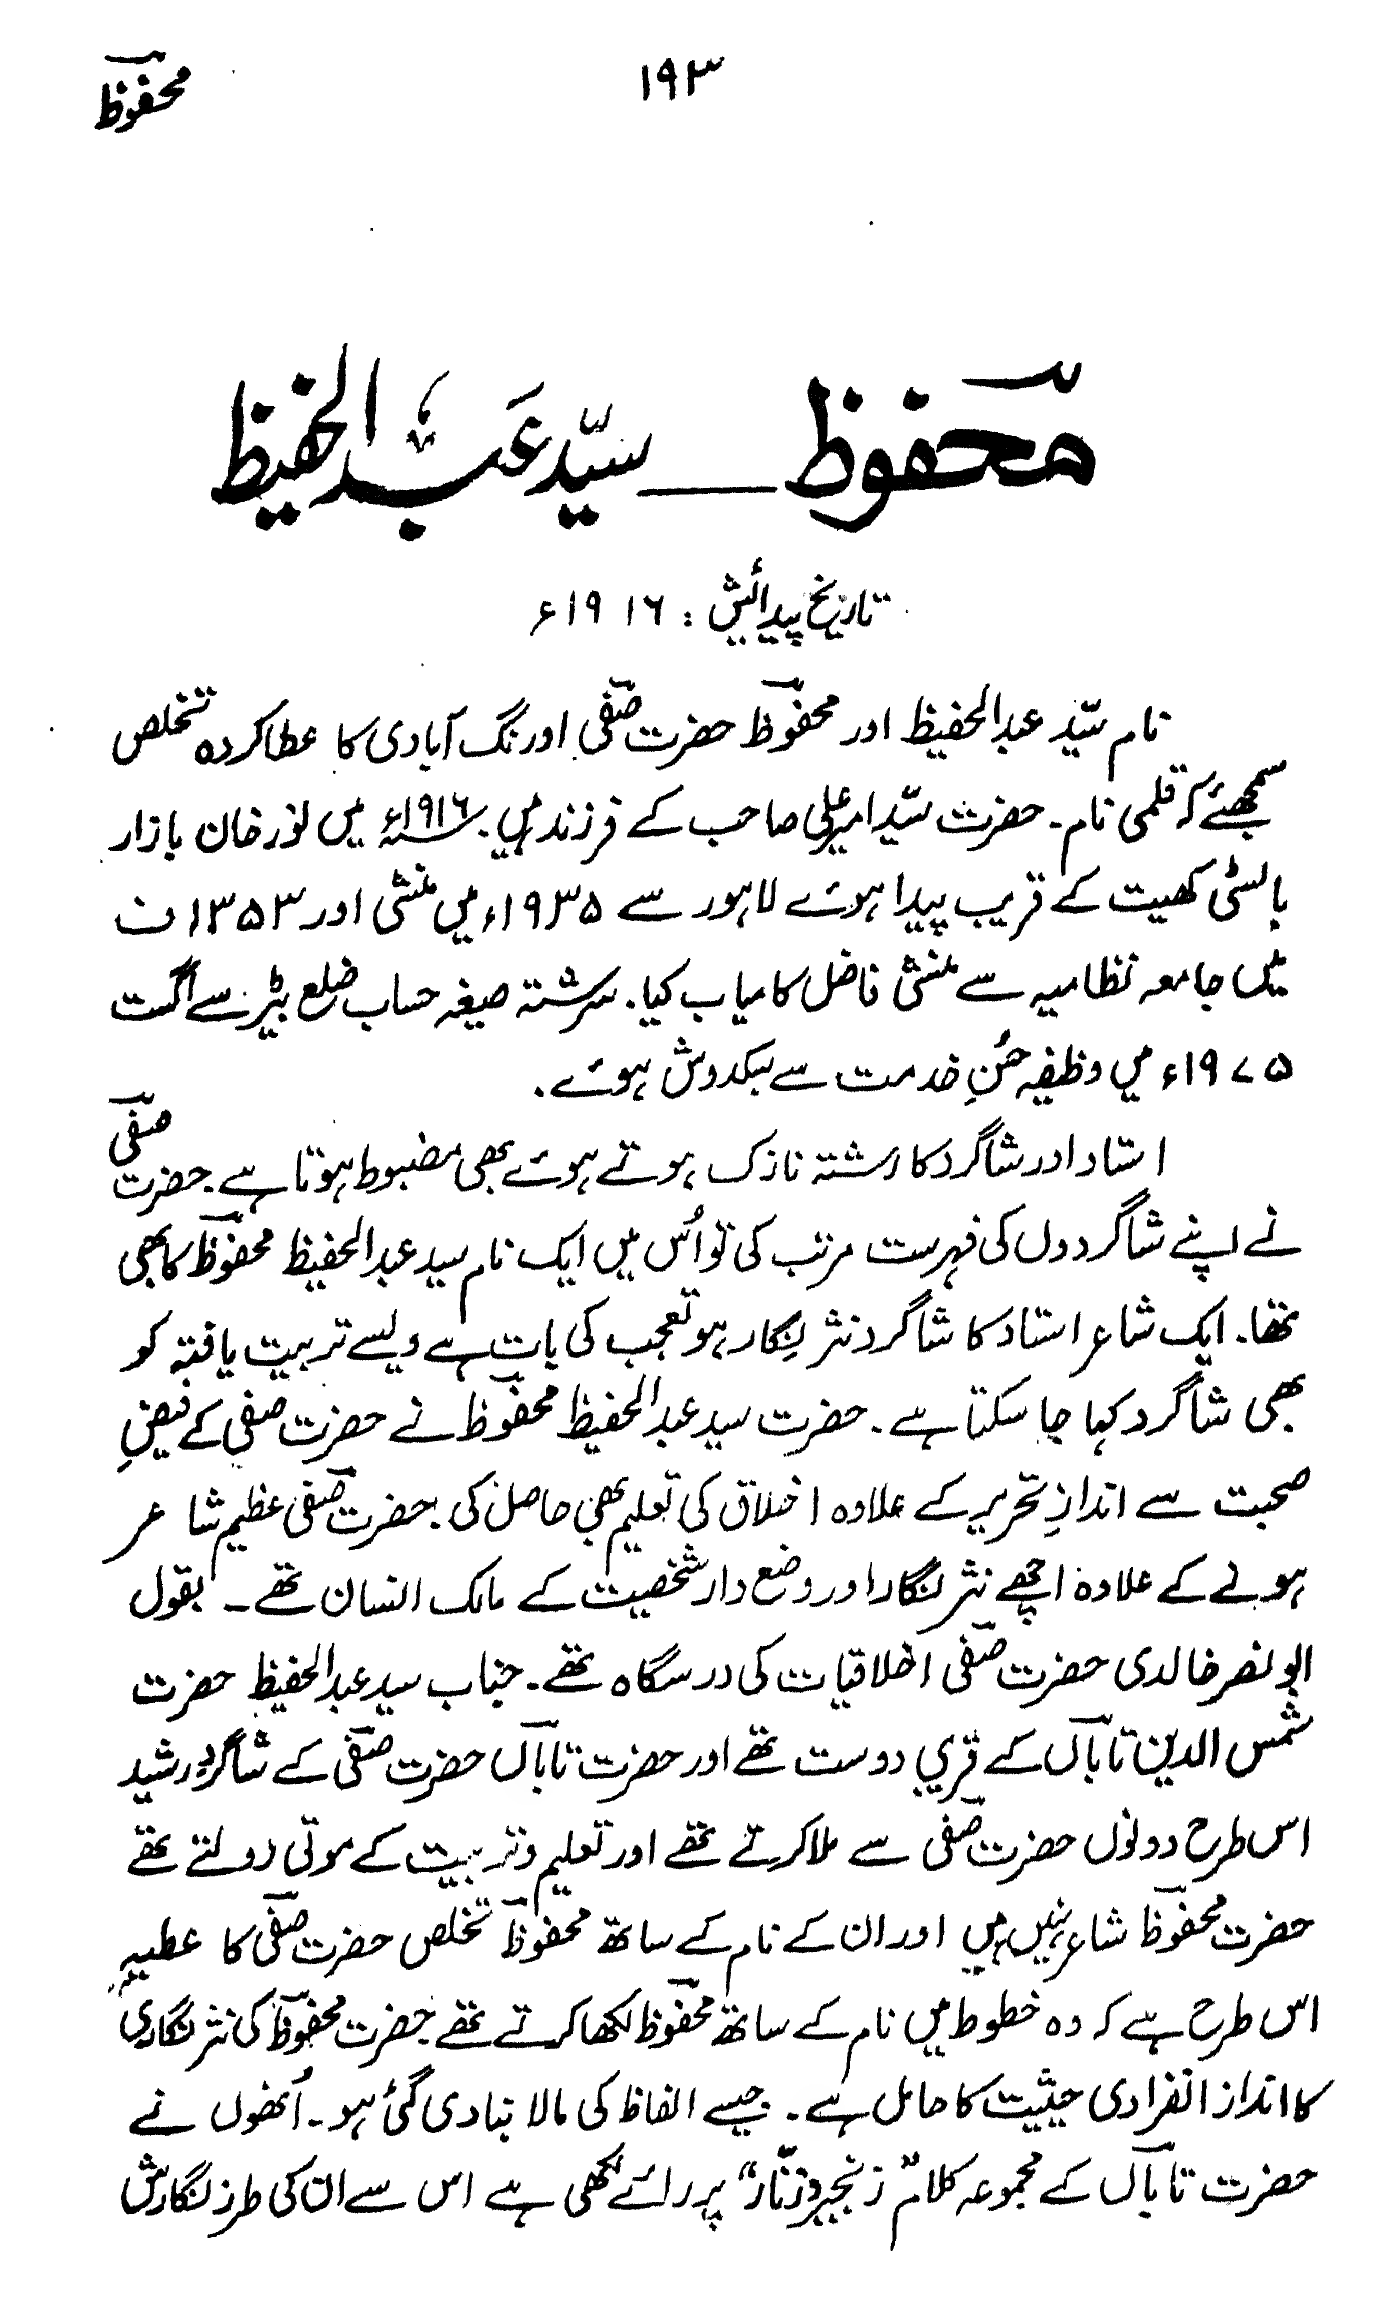 ۱۹۳
محفوظؔ
محفوظؔ — سیّد عبد الحفیظ
تاریخ پیدائش : ۱۹۱۶ء
نام سیّد عبدالحفیظ اور محفوظؔ حضرت صفیؔ اورنگ آبادی کا عطا کردہ تخلص
سمجھئے کہ قلمی نام۔ حضرت سیّد امیر علی صاحب کے فرزند ہیں۔ ۱۹۱۶ء میں نور خان بازار
بالسٹی کھیت کے قریب پیدا ہوئے لاہور سے ۱۹۳۵ء میں منشی اور ۱۳۵۳ ف
میں جامعہ نظامیہ سے منشی فاضل کامیاب کیا۔ سررشتہ صیغہ حساب ضلع بیڑ سے اگست
۱۹۷۵ء میں وظیفہ حُسنِ خدمت سے سبکدوش ہوئے۔
استاد اور شاگرد کا رشتہ نازک ہوتے ہوئے بھی مضبوط ہوتا ہے۔ حضرت صفیؔ
نے اپنے شاگردوں کی فہرست مرتب کی تو اُس میں ایک نام سید عبدالحفیظ محفوظؔ کا بھی
تھا۔ ایک شاعر استاد کا شاگرد نثر نگار ہو تعجب کی بات ہے ویسے تربیت یافتہ کو
بھی شاگرد کہا جا سکتا ہے۔ حضرت سید عبدالحفیظ محفوظؔ نے حضرت صفی کے فیضِ
صحبت سے اندازِ تحریر کے علاوہ اخلاق کی تعلیم بھی حاصل کی۔ حضرت صفیؔ عظیم شاعر
ہونے کے علاوہ اچھے نثر نگار اور وضع دار شخصیت کے مالک انسان تھے۔ بقول
ابو نصر خالدی حضرت صفیؔ اخلاقیات کی درسگاہ تھے۔ جناب سید عبدالحفیظ حضرت
شمس الدین تاباںؔ کے قریبی دوست تھے اور حضرت تاباںؔ حضرت صفیؔ کے شاگردِ رشید
اس طرح دونوں حضرت صفیؔ سے ملا کرتے تھے اور تعلیم و تربیت کے موتی رولتے تھے
حضرت محفوظؔ شاعر نہیں ہیں اور ان کے نام کے ساتھ محفوظؔ تخلص حضرت صفیؔ کا عطیہ
اس طرح ہے کہ وہ خطوط میں نام کے ساتھ محفوظؔ لکھا کرتے تھے۔ حضرت محفوظؔ کی نثر نگاری
کا انداز انفرادی حیثیت کا حامل ہے۔ جیسے الفاظ کی مالا بنا دی گئی ہو۔ اُنھوں نے
حضرت تاباںؔ کے مجموعہ کلام ”زنجیر و زنّار“ پر رائے لکھی ہے اس سے ان کی طرز نگارش